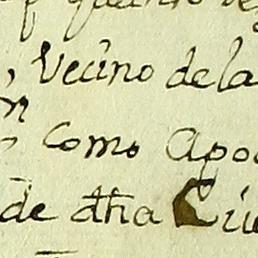 Vecino de la
como Apo
de dha Ciu